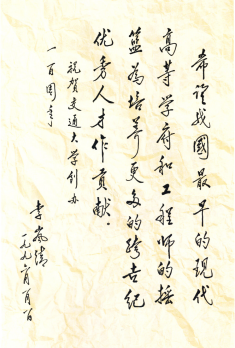 希望我國最早的現代
高等学府和工程师的摇
篮為培养更多的跨世纪
优秀人才作贡献。
祝贺交通大学创办
一百周年
李岚清
一九九六年一月一日